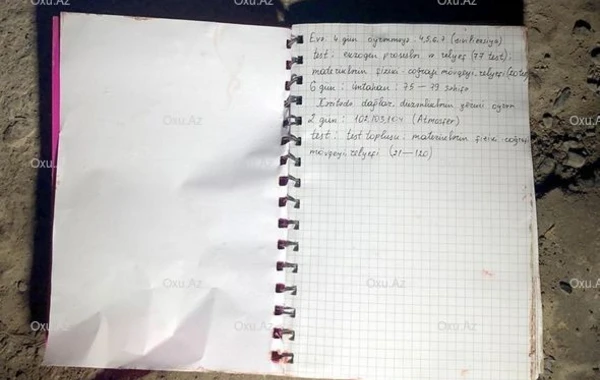 Oxu.Az Oxu.Az Oxu.Az
Evə 4 gün öyrənməyə 4,5,6,7 (sivilizasiya)
test: ekzogen proseslər və relyef (77 test).
materiklərin fiziki-coğrafi mövqeyi, relyefi
6 gün: imtahan: 75 — 79 səhifə
Xəritədə dağlar, düzənliklərin yerini öyrən
2 gün: 102,103,104 (Atmosfer)
test: test toplusu: materiklərin fiziki-coğrafi
mövqeyi, relyefi (21—120)
Oxu.Az Oxu.Az Oxu.Az
Oxu.Az Oxu.Az Oxu.Az
Oxu.Az Oxu.Az Oxu.Az